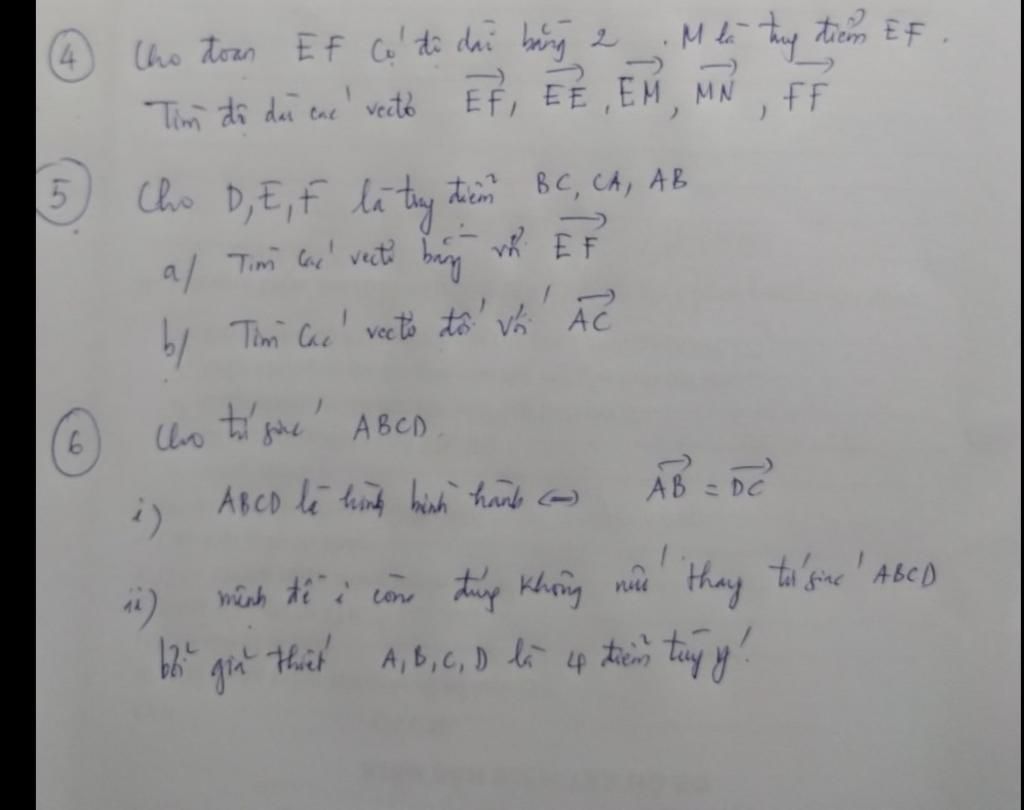 ④ Cho đoạn EF có độ dài bằng 2. M là trung điểm EF.
Tìm độ dài các vectơ EF, EE, EM, MN, FF
⑤ Cho D, E, F là trung điểm BC, CA, AB
a/ Tìm các vectơ bằng với EF
b/ Tìm các vectơ đối với AC
⑥ Cho tứ giác ABCD.
i) ABCD là hình bình hành ⇔ AB = DC
ii) mệnh đề i còn đúng không nếu thay tứ giác ABCD
bởi giả thiết A, B, C, D là 4 điểm tùy ý!